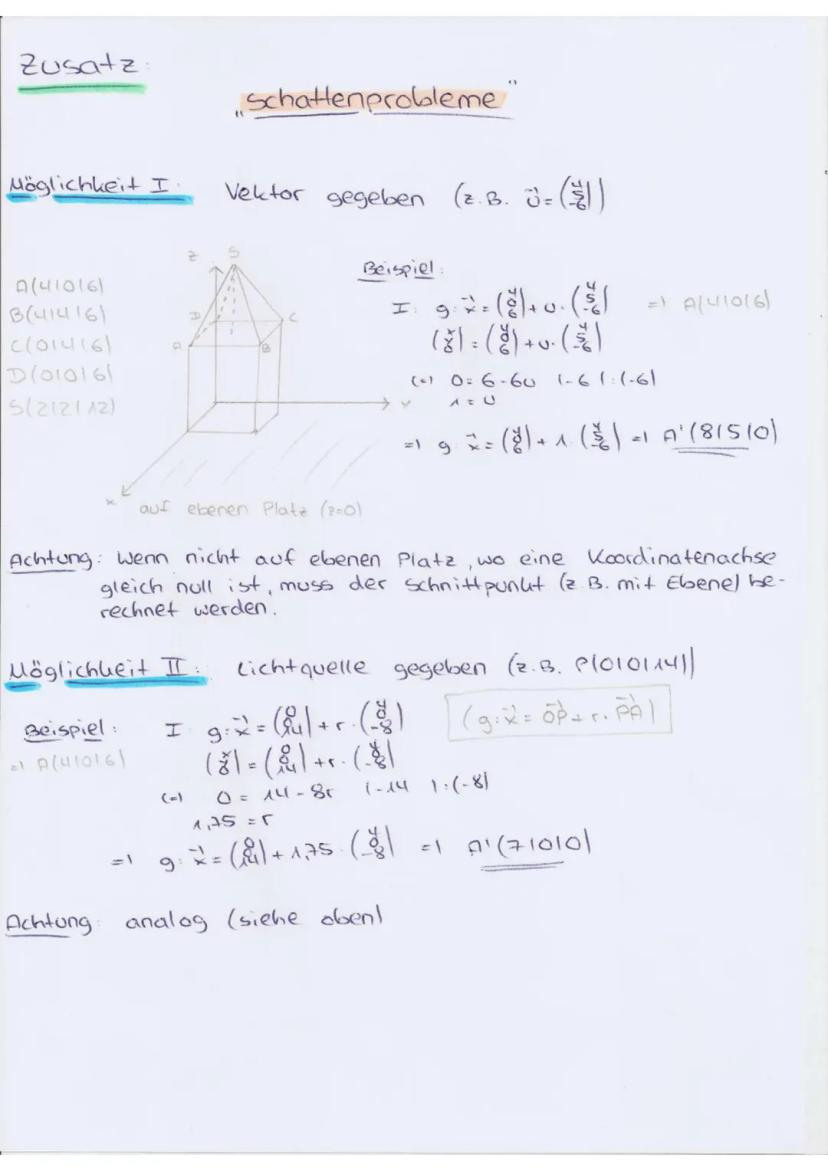 Zusatz:
„Schattenprobleme"
Möglichkeit I: Vektor gegeben (z.B. u⃗ = (4 5 -6))
A(4|0|6)
B(4|4|6)
C(0|4|6)
D(0|0|6)
S(2|2|12)
z S
D C
A B
y
x
auf ebenen Platz (z=0)
Beispiel:
I: g: x⃗ = (4 0 6) + u · (4 5 -6) => A(4|0|6)
(x y 0) = (4 0 6) + u · (4 5 -6)
(=) 0 = 6 - 6u |-6 |:(-6)
1 = u
=> g: x⃗ = (4 0 6) + 1 · (4 5 -6) => A'(8|5|0)
Achtung: Wenn nicht auf ebenen Platz, wo eine Koordinatenachse
gleich null ist, muss der Schnittpunkt (z.B. mit Ebene) be-
rechnet werden.
Möglichkeit II: Lichtquelle gegeben (z.B. P(0|0|14))
Beispiel: I g: x⃗ = (0 0 14) + r · (4 0 -8) (g: x⃗ = OP⃗ + r · PA⃗)
=> A(4|0|6) (x y 0) = (0 0 14) + r · (4 0 -8)
(=) 0 = 14 - 8r |-14 |:(-8)
1,75 = r
=> g: x⃗ = (0 0 14) + 1,75 · (4 0 -8) => A'(7|0|0)
Achtung: analog (siehe oben)